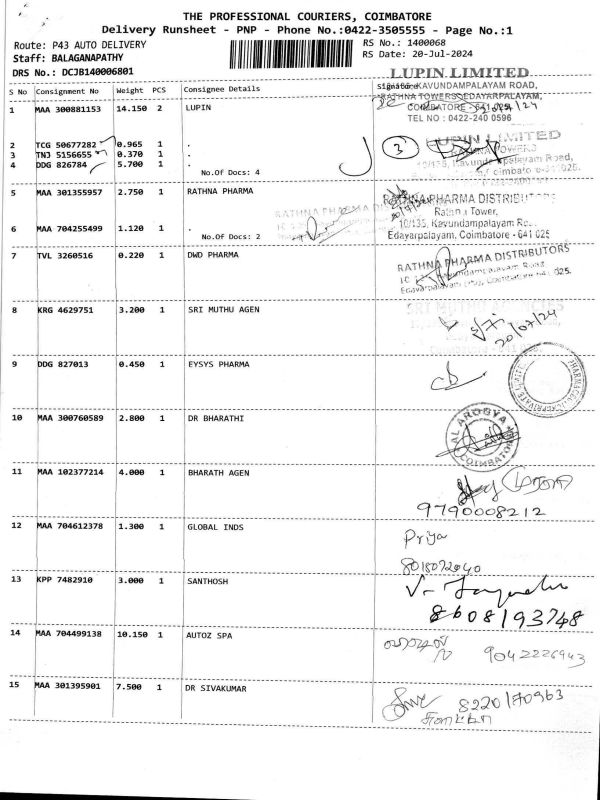 THE PROFESSIONAL COURIERS, COIMBATORE
Delivery Runsheet - PNP - Phone No.:0422-3505555 - Page No.:1
Route: P43 AUTO DELIVERY
RS No.: 1400068
Staff: BALAGANAPATHY
RS Date: 20-Jul-2024
DRS No.: DCJB140006801
S No Consignment No Weight PCS Consignee Details Signature
LUPIN LIMITED
KAVUNDAMPALAYAM ROAD,
RATHNA TOWERS EDAYARPALAYAM,
COIMBATORE
TEL NO : 0422-240 0596
1 MAA 300881153 14.150 2 LUPIN
LUPIN LIMITED
2 TCG 50677282 0.965 1 .
3 TNJ 5156655 0.370 1 .
4 DDG 826784 5.700 1 .
No.Of Docs: 4
3
TOWERS
10/135, Kavundampalayam Road,
5 MAA 301355957 2.750 1 RATHNA PHARMA
RATHNA PHARMA DISTRIBUTORS
Ratna Tower,
10/135, Kavundampalayam Road,
Edayarpalayam, Coimbatore - 641 025
6 MAA 704255499 1.120 1 .
No.Of Docs: 2
7 TVL 3260516 0.220 1 DWD PHARMA
RATHNA PHARMA DISTRIBUTORS
8 KRG 4629751 3.200 1 SRI MUTHU AGEN
SRI MUTHU AGENCIES
20/07/24
9 DDG 827013 0.450 1 EYSYS PHARMA
10 MAA 300760589 2.800 1 DR BHARATHI
AL AROGYA
COIMBATORE
11 MAA 102377214 4.000 1 BHARATH AGEN
9790008212
12 MAA 704612378 1.300 1 GLOBAL INDS
Priya
8018072040
13 KPP 7482910 3.000 1 SANTHOSH
8608193748
14 MAA 704499138 10.150 1 AUTOZ SPA
9042226943
15 MAA 301395901 7.500 1 DR SIVAKUMAR
8220170963